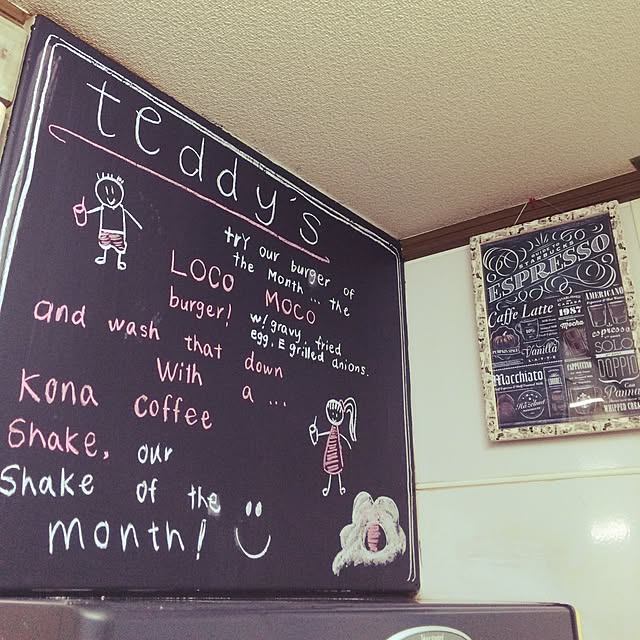 teddy's
try our burger of
the month... the
LOCO MOCO
burger! w/ gravy, fried
egg, E grilled onions.
and wash that down
With a ...
Kona Coffee
Shake, our
Shake of the
month!
ESPRESSO
Caffe Latte
1987
Mocha
AMERICANO
espresso
SOLO
Vanilla
DOPPIO
Macchiato
CAPPUCCINO
Hazelnut
Panna
WHIPPED CREAM